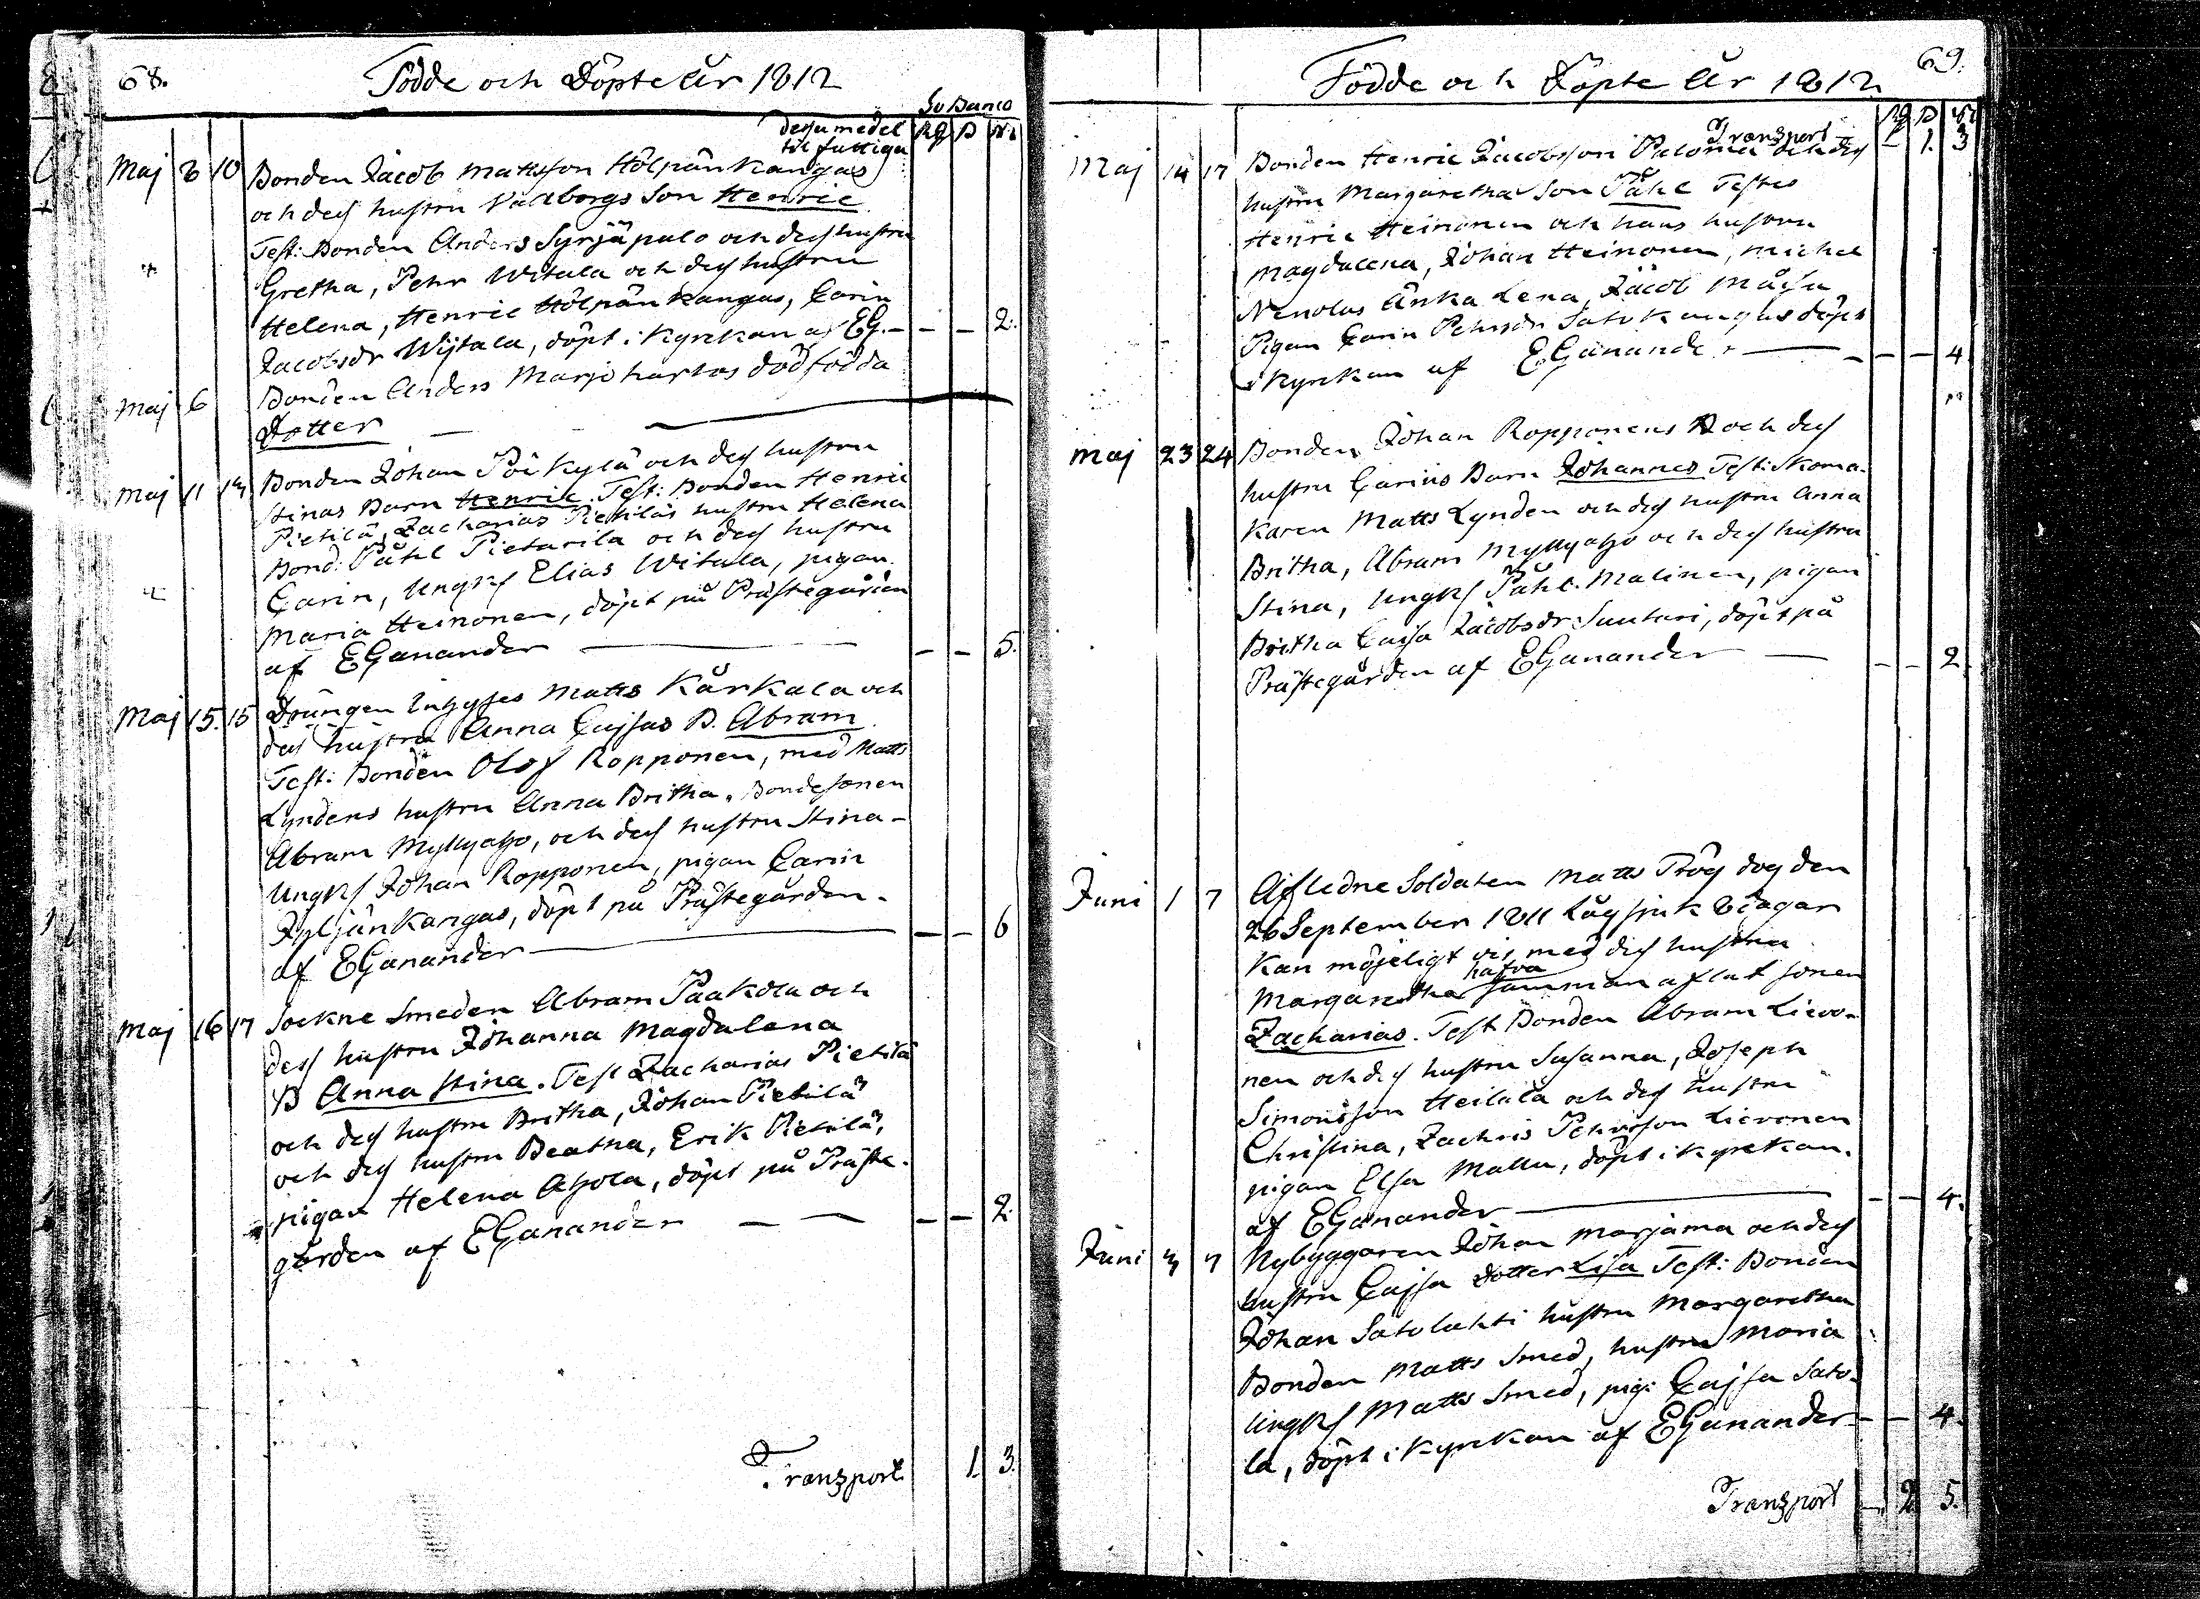 68.
Födde och Döpte År 1812
Sv Banco
dessa medel
til fattiga
Rg ß
Maj 8 10 Bonden Jacob Mattsson Hölpänkangas
och dess hustru Valborgs Son Henric
Test: Bonden Anders Syrjäpalo och dess hustru
Gretha, Pehr Witala och dess hustru
Helena, Henric Hölpänkangas, Carin
Jacobsdr Wijtala, döpt i Kyrkan af EG.- - - 2.
Maj 6 Bonden Anders Marjoharhos dödfödda
Dotter
Maj 11 13 Bonden Johan Pöikylä och dess hustru
Stinas Barn Henric. Test: Bonden Henric
Pietilä, Zacharias Pietiläs hustru Helena
Bond: Påhl Pietarila och dess hustru
Carin, Ungk Elias Witala, pigan
Maria Heinonen, döpt på Prästegården
af EGanander - - 5.
Maj 15. 15 Drängen Inhyses Matts Kärkala och
dess hustru Anna Cajsas B. Abram
Test: Bonden Olof Ropponen, med Matts
Lyndens hustru Anna Britha, Bondesonen
Abram Myllyaho, och dess hustru Stina-
Ungk Johan Ropponen, pigan Carin
Jyljänkangas, döpt på Prästegården.
af EGanander - - 6
Maj 16 17 Sockne Smeden Abram Paakola och
dess hustru Johanna Magdalena
B Anna Stina. Test Zacharias Pietilä
och dess hustru Britha, Johan Pietilä
och dess hustru Beatha, Erik Pietilä,
pigan Helena Ahola, döpt på Präste-
gården af EGanander - - 2.
Transport 1. 3.
69.
Födde och Döpte År 1812
Rg ß
Transport - 1. 3
Maj 14 17 Bonden Henric Jacobsson Palomaa och dess
hustru Margaretha Son Påhl Testes
Henric Heinonen och hans hustru
Magdalena, Johan Heinonen, Michel
Änka Lena, Jacob
Pigan Carin Pehrsdr Satokangas döpt
i Kyrkan af EGanander - - 4
Maj 23 24 Bonden Johan Ropponens och dess
hustru Carins Barn Johannes Test: Skoma-
karen Matts Lynden och dess hustru Anna
Britha, Abram Myllyaho och dess hustru
Stina, Ungk Påhl Malinen, pigan
Britha Cajsa Jacobsdr Suutari, döpt på
Prästegården af EGanander - - 2
Juni 1 7 Afledne Soldaten Matts Trög dog den
26 September 1811 Låg sjuk 8 dagar
Kan möjeligt vis med dess hustru
hafva
Margaretha samman aflat sonen
Zacharias. Test Bonden Abram Lievo-
nen och dess hustru Susanna, Joseph
Simonsson Heilala och dess hustru
Christina, Zachris Pehrsson Lievonen
pigan Elsa Mallu, döpt i kyrkan.
af EGanander - - 4.
Juni 3 7 Nybyggaren Johan Marjama och dess
hustru Cajsa Dotter Lisa Test: Bonden
Johan Satolahti hustru Margaretha
Bonden Matts Smed, hustru Maria
Ungk Matts Smed, pig: Cajsa Sato-
la, döpt i Kyrkan af EGanander - - 4.
Transport - 2 5.